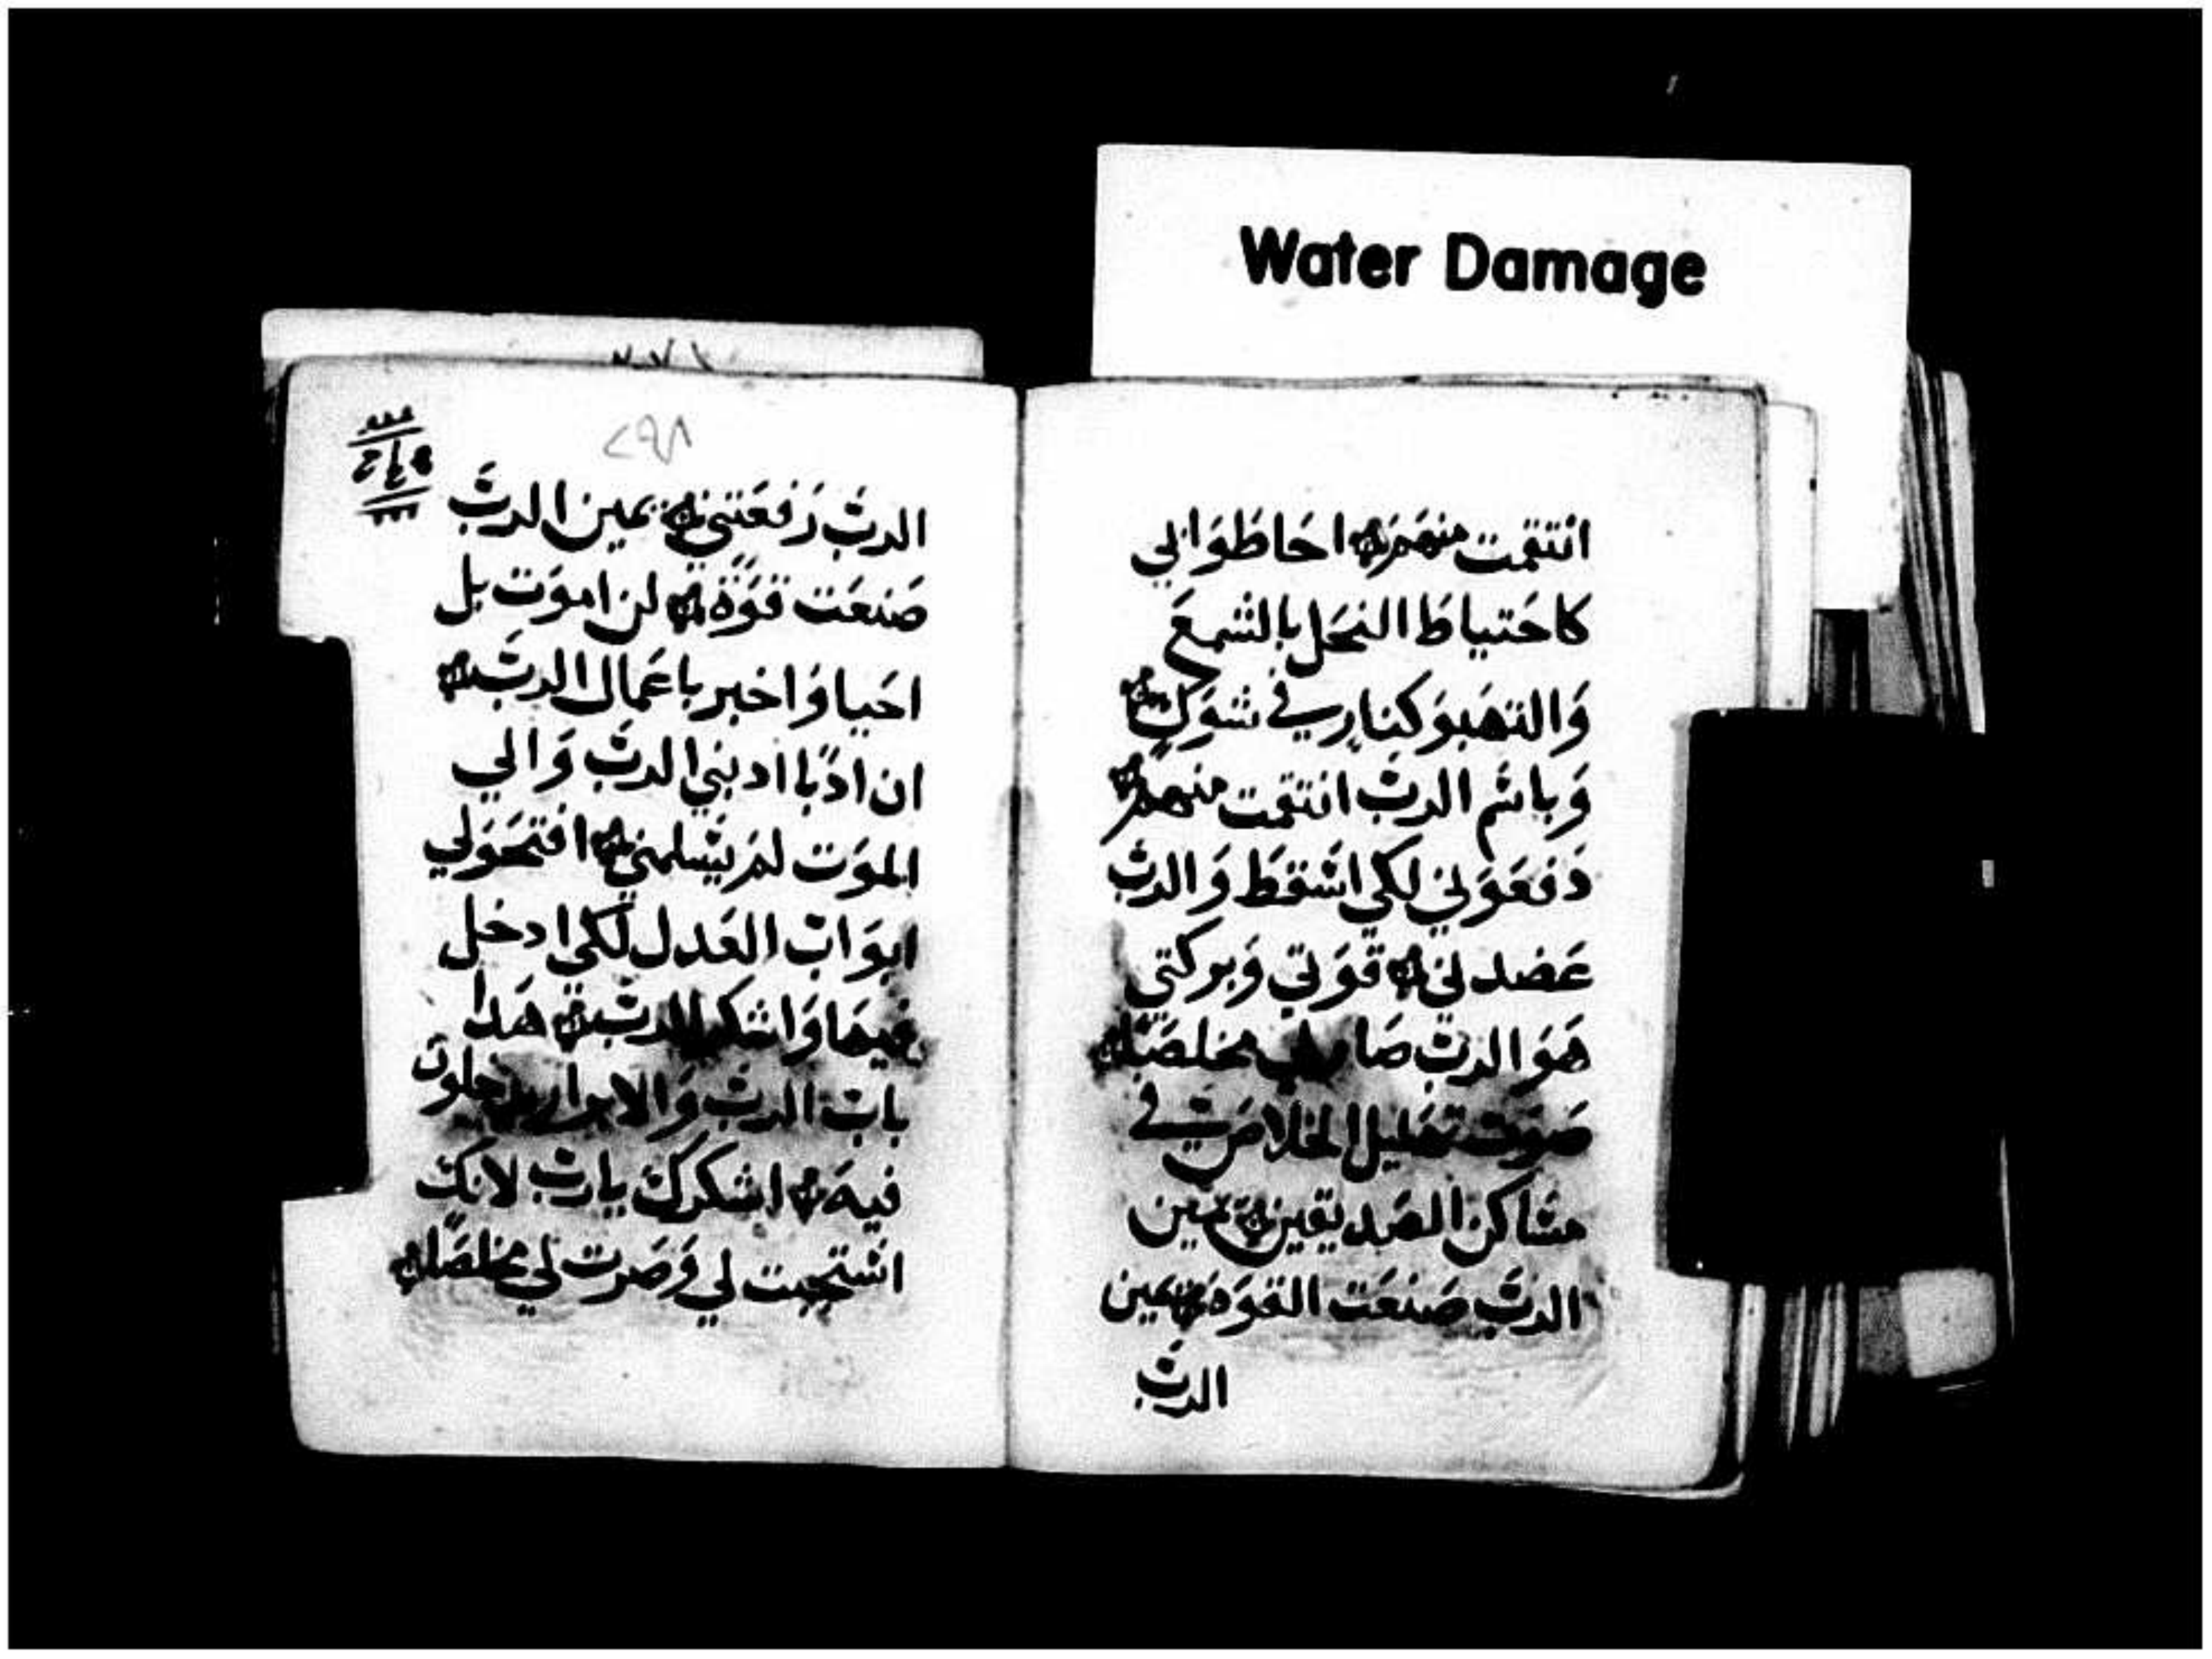 Water Damage
انتقمت منهم احاطوا بي
كاحتياط النحل بالشمع
والتهبو كنار في شوك
وباسم الرب انتقمت منهم
دفعوني لكي اسقط والرب
عضدني قوتي وبركتي
هو الرب صار لي مخلصًا
صوت تهليل الخلاص في
مساكن الصديقين يمين
الرب صنعت القوه يمين
الرب
٢٩٨
الرب رفعتني يمين الرب
صنعت قوة لن اموت بل
احيا واخبر باعمال الرب
ان ادبًا ادبني الرب والي
الموت لم يسلمني افتحولي
ابواب العدل لكي ادخل
فيها واشكر الرب هدا
باب الرب والابرار يدخلون
فيه اشكرك يارب لانك
استجبت لي وصرت لي مخلصًا